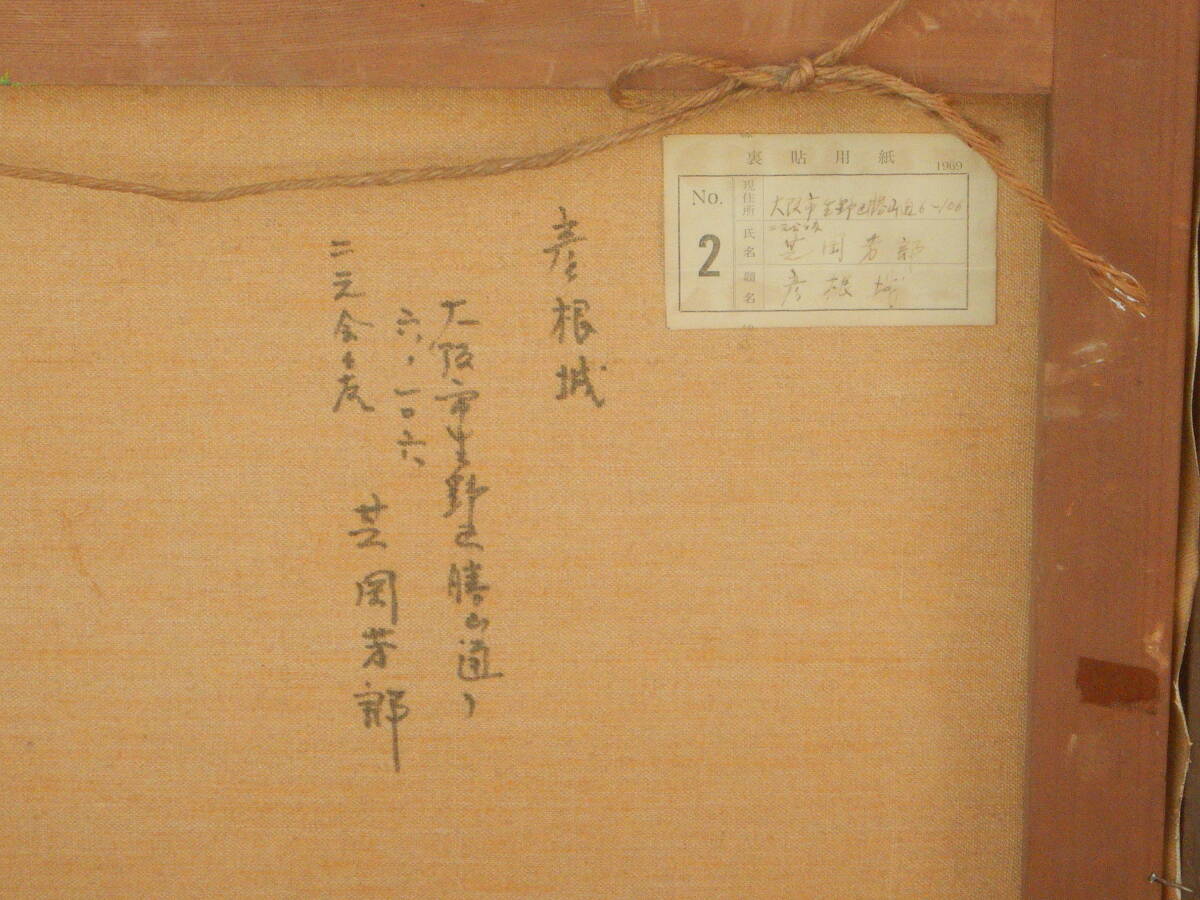 裏貼用紙
1969
No.
2
現住所
大阪市生野区勝山通6-106
氏名
二元会会友
芝岡芳郎
題名
彦根城
彦根城
大阪市生野区勝山通り
六、一〇六
二元会々友
芝岡芳郎